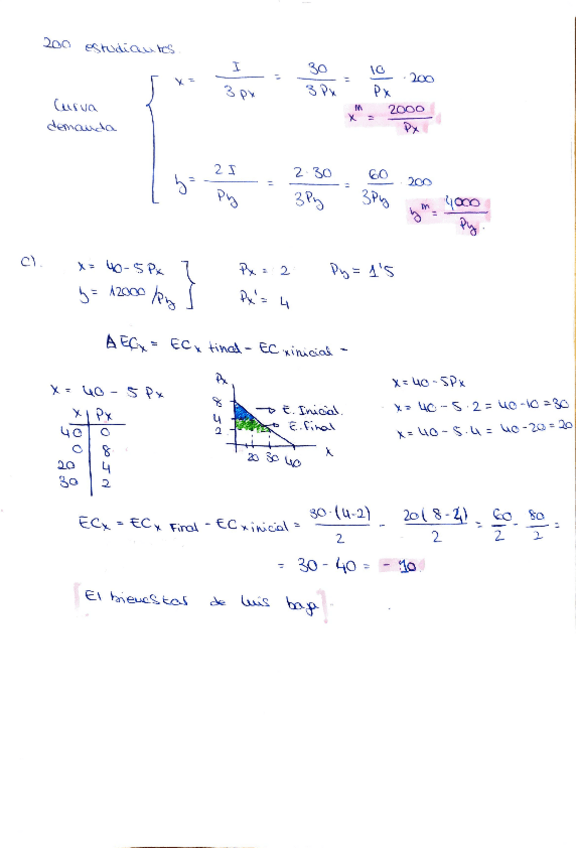 200 estudiantes
Curva demanda
x = I / 3Px = 30 / 3Px = 10 / Px · 200
x^m = 2000 / Px
y = 2I / Py = 2·30 / 3Py = 60 / 3Py · 200
y^m = 4000 / Py
C).
x = 40-5Px
y = 12000/Py
Px = 2 Py = 1'5
Px' = 4
Δ ECx = ECx final - EC x inicial -
x = 40 - 5 Px
x Px
40 0
0 8
20 4
30 2
Px
8
4
2
20 30 40 x
E. Inicial.
E. Final
x = 40-5Px
x = 40 - 5·2 = 40-10 = 30
x = 40 - 5·4 = 40-20 = 20
ECx = ECx Final - EC x inicial = 30·(4-2) / 2 - 20(8-4) / 2 = 60 / 2 - 80 / 2 =
= 30 - 40 = - 10
[El bienestar de Luis baja].